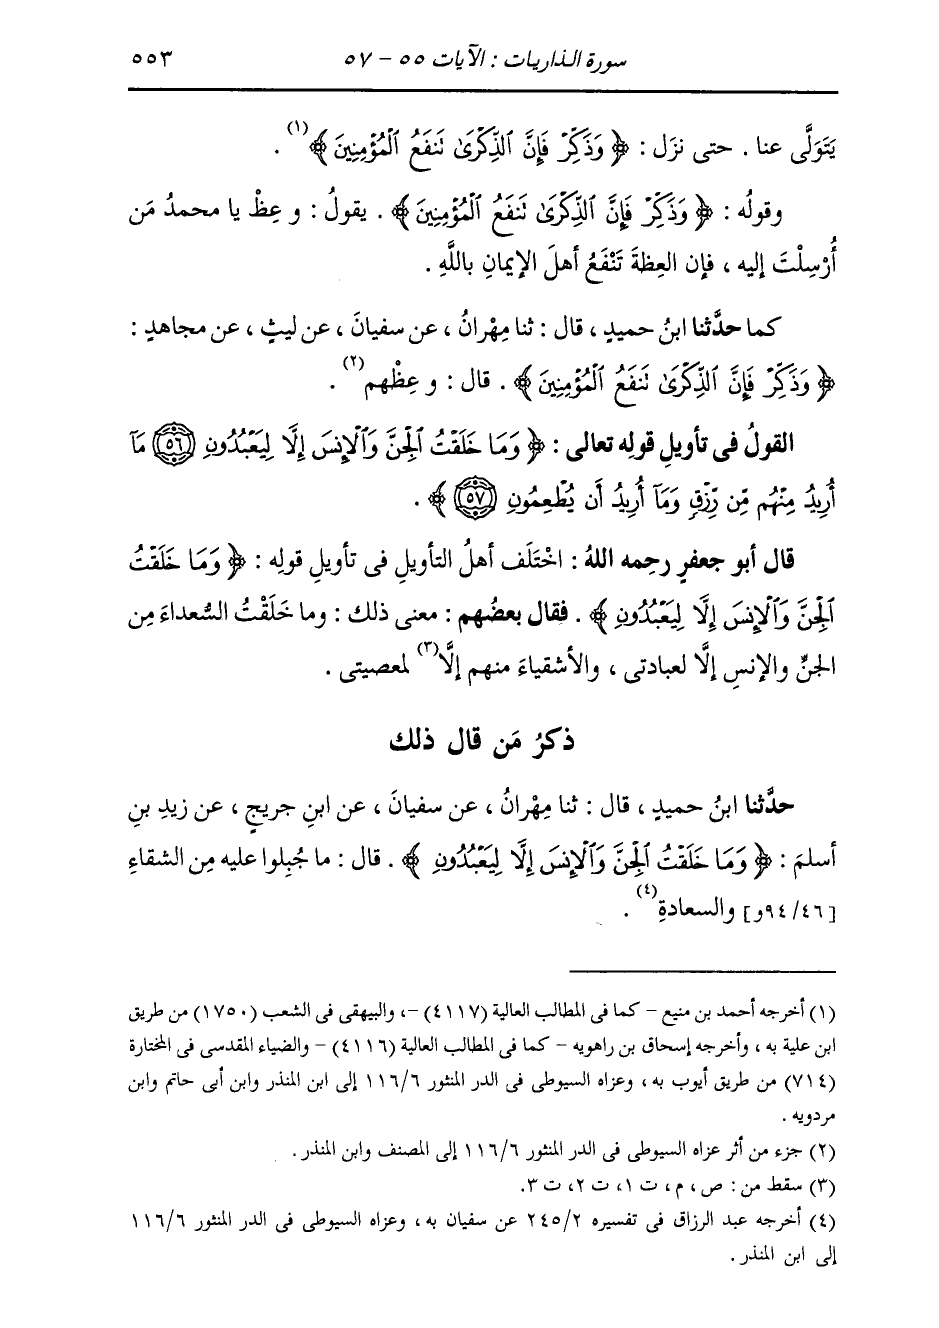 سورة الذاريات : الآيات ٥٥ - ٥٧ ٥٥٣
يَتَوَلَّى عنا . حتى نزَل : ﴿ وَذَكِّرْ فَإِنَّ ٱلذِّكْرَىٰ تَنفَعُ ٱلْمُؤْمِنِينَ ﴾(١) .
وقولُه : ﴿ وَذَكِّرْ فَإِنَّ ٱلذِّكْرَىٰ تَنفَعُ ٱلْمُؤْمِنِينَ ﴾ . يقولُ : وعِظْ يا محمدُ مَن
أُرْسِلْتَ إليه ، فإن العِظةَ تَنْفَعُ أهلَ الإيمانِ باللَّهِ .
كما حدَّثنا ابنُ حميدٍ ، قال : ثنا مِهْرانُ ، عن سفيانَ ، عن ليثٍ ، عن مجاهدٍ :
﴿ وَذَكِّرْ فَإِنَّ ٱلذِّكْرَىٰ تَنفَعُ ٱلْمُؤْمِنِينَ ﴾ . قال : وعِظْهم(٢) .
القولُ فى تأويلِ قولِه تعالى : ﴿ وَمَا خَلَقْتُ ٱلْجِنَّ وَٱلْإِنسَ إِلَّا لِيَعْبُدُونِ (٥٦) مَآ
أُرِيدُ مِنْهُم مِّن رِّزْقٍ وَمَآ أُرِيدُ أَن يُطْعِمُونِ (٥٧) ﴾ .
قال أبو جعفرٍ رحِمه اللهُ : اخْتَلَف أهلُ التأويلِ فى تأويلِ قولِه : ﴿ وَمَا خَلَقْتُ
ٱلْجِنَّ وَٱلْإِنسَ إِلَّا لِيَعْبُدُونِ ﴾ . فقال بعضُهم : معنى ذلك : وما خَلَقْتُ السُّعداءَ مِن
الجنِّ والإنسِ إلَّا لعبادتى ، والأشقياءَ منهم إلَّا(٣) لمعصيتى .
ذكرُ مَن قال ذلك
حدَّثنا ابنُ حميدٍ ، قال : ثنا مِهْرانُ ، عن سفيانَ ، عن ابنِ جريجٍ ، عن زيدِ بنِ
أسلمَ : ﴿ وَمَا خَلَقْتُ ٱلْجِنَّ وَٱلْإِنسَ إِلَّا لِيَعْبُدُونِ ﴾ . قال : ما جُبِلوا عليه مِن الشقاءِ
[٩٤/٤٦و] والسعادةِ(٤) .
(١) أخرجه أحمد بن منيع - كما فى المطالب العالية (٤١١٧) -، والبيهقى فى الشعب (١٧٥٠) من طريق
ابن علية به ، وأخرجه إسحاق بن راهويه - كما فى المطالب العالية (٤١١٦) - والضياء المقدسى فى المختارة
(٧١٤) من طريق أيوب به ، وعزاه السيوطى فى الدر المنثور ١١٦/٦ إلى ابن المنذر وابن أبى حاتم وابن
مردويه .
(٢) جزء من أثر عزاه السيوطى فى الدر المنثور ١١٦/٦ إلى المصنف وابن المنذر .
(٣) سقط من : ص ، م ، ت ١، ت ٢، ت ٣.
(٤) أخرجه عبد الرزاق فى تفسيره ٢٤٥/٢ عن سفيان به ، وعزاه السيوطى فى الدر المنثور ١١٦/٦
إلى ابن المنذر .